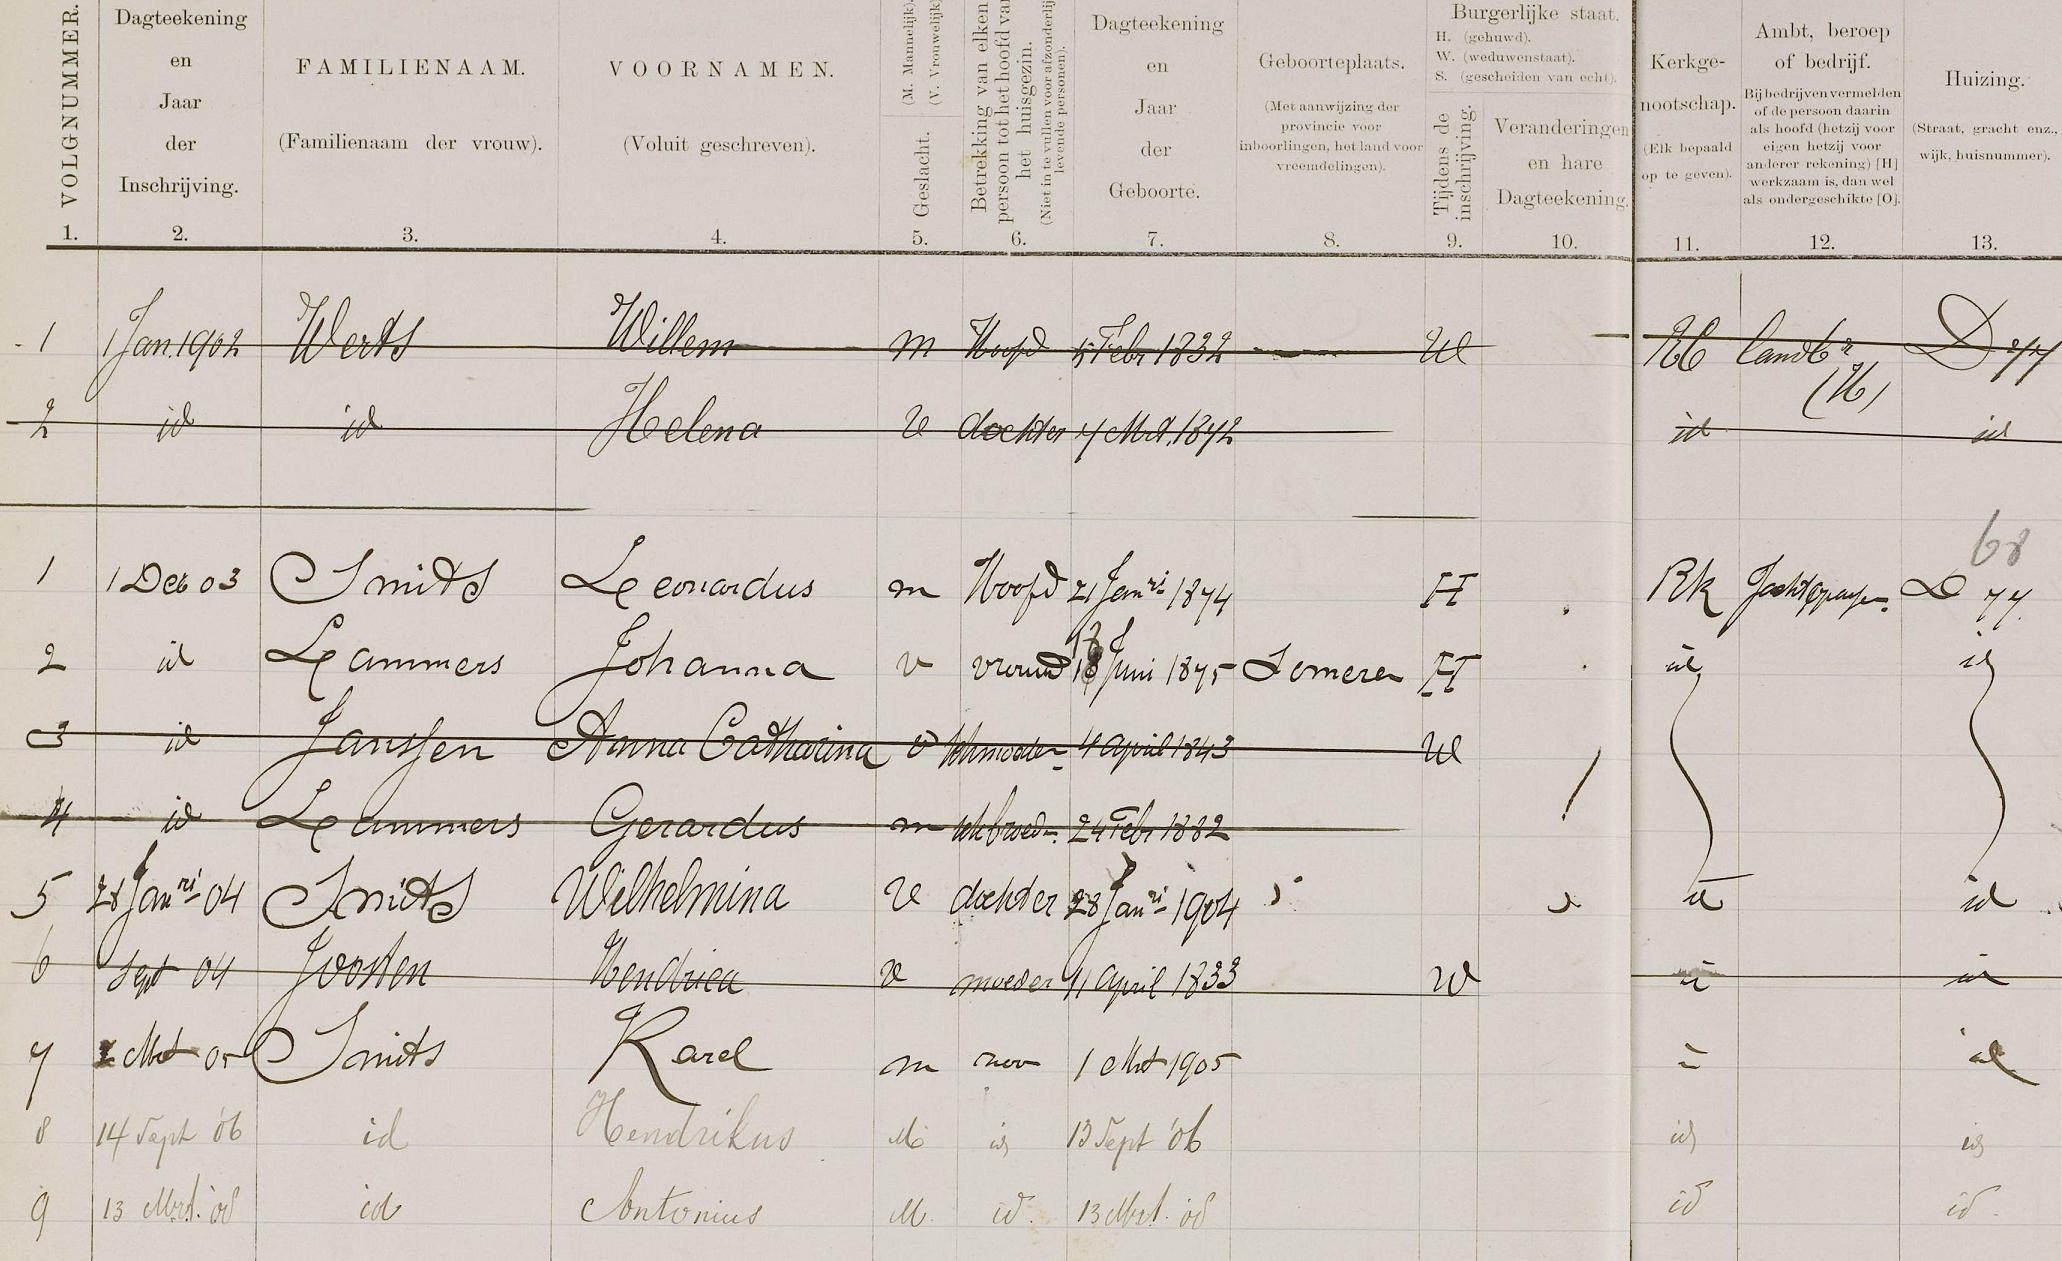 VOLGNUMMER.
Dagteekening
en
Jaar
der
Inschrijving.
FAMILIENAAM.
(Familienaam der vrouw).
VOORNAMEN.
(Voluit geschreven).
Geslacht.
(M. Mannelijk).
(V. Vrouwelijk)
Betrekking van elken
persoon tot het hoofd van
het huisgezin.
(Niet in te vullen voor afzonderlijk
levende personen).
Dagteekening
en
Jaar
der
Geboorte.
Geboorteplaats.
(Met aanwijzing der
provincie voor
inboorlingen, het land voor
vreemdelingen).
Burgerlijke staat.
H. (gehuwd).
W. (weduwenstaat).
S. (gescheiden van echt).
Tijdens de
inschrijving.
Veranderingen
en hare
Dagteekening.
Kerkge-
nootschap.
(Elk bepaald
op te geven).
Ambt, beroep
of bedrijf.
Bij bedrijven vermelden
of de persoon daarin
als hoofd (hetzij voor
eigen hetzij voor
anderer rekening) [H]
werkzaam is, dan wel
als ondergeschikte [O].
Huizing.
(Straat, gracht enz.,
wijk, huisnummer).
1. 2. 3. 4. 5. 6. 7. 8. 9. 10. 11. 12. 13.
1 1 Jan. 1902 Werts Willem m Hoofd 5 Febr 1832 W RC landbr D 77
(H)
2 id id Helena V dochter 7 Mrt. 1872 id id
68
1 1 Dec 03 Smits Leonardus m Hoofd 21 Janri 1874 H Rk D 77.
2 id Lammers Johanna v vrouw 18 Juni 1875 Someren H id id
3 id Janssen Anna Catharina v schmoeder 4 April 1843 W
4 id Lammers Gerardus m schbroedr. 24 Febr 1882
5 28 Janri 04 Smits Wilhelmina V dochter 28 Janri 1904 id id
6 Sept 04 Joosten Hendrica V moeder 11 April 1833 W id id
7 Mrt 05 Smits Karel m zoon 1 Mrt 1905 id id
8 14 Sept '06 id Hendrikus M id 13 Sept '06 id id
9 13 Mrt. '08 id Antonius M. id. 13 Mrt. '08 id id.